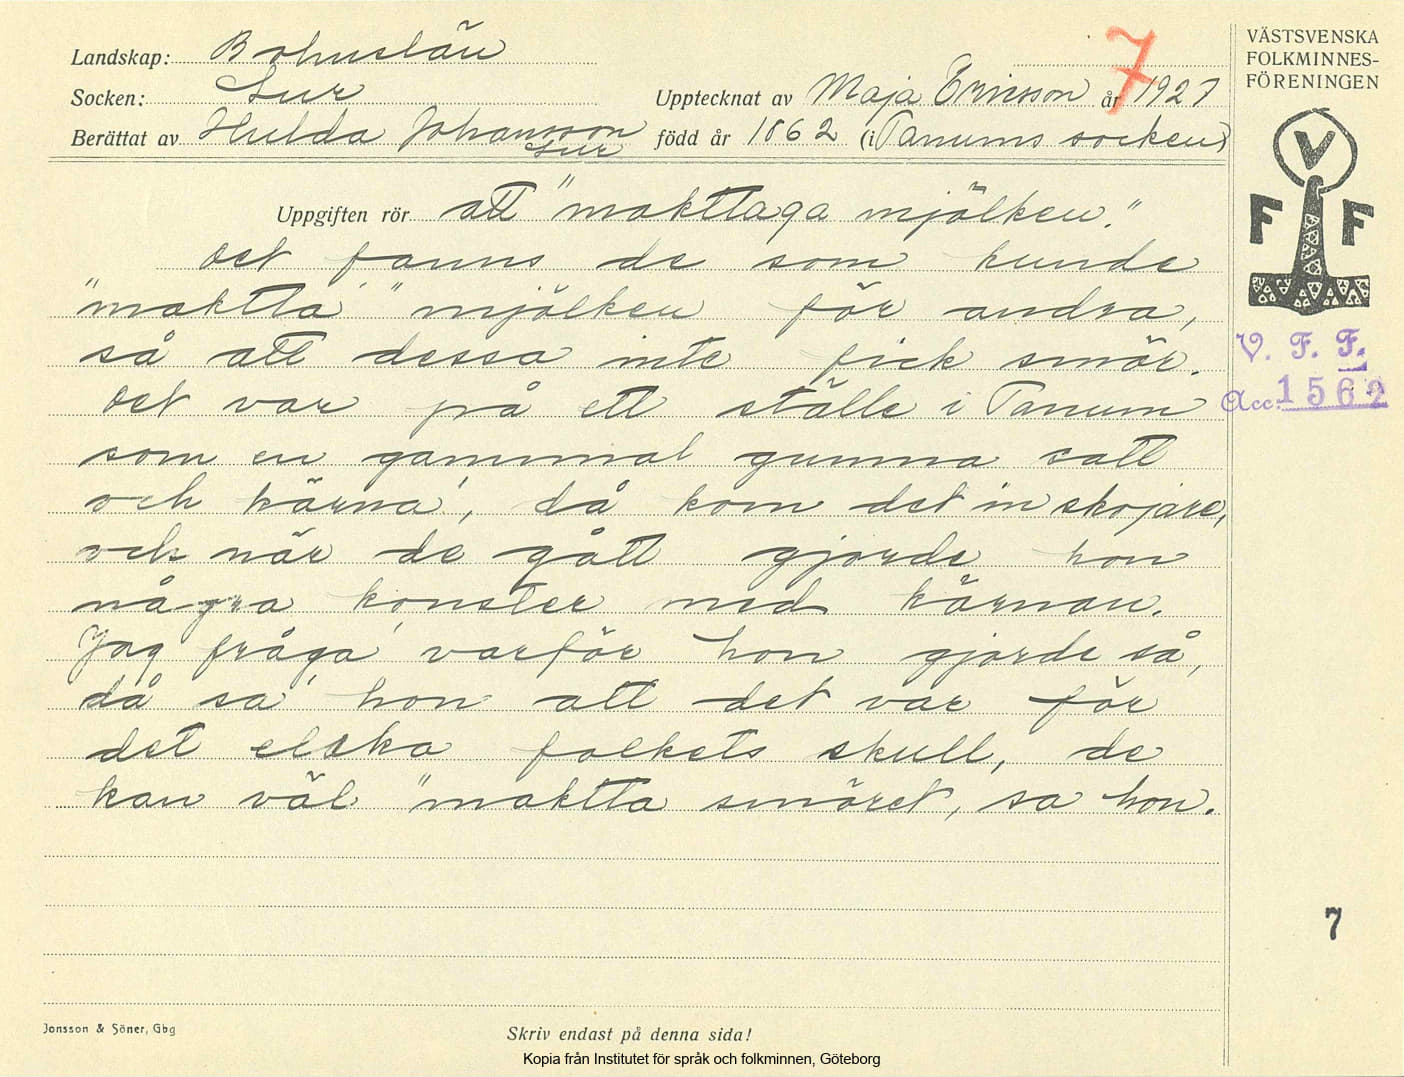 Landskap: Bohuslän
Socken: Lur
Upptecknat av Maja Ericsson år 1927
Berättat av Hulda Johansson
Lur
född år 1862 (i Tanums socken)
7
VÄSTSVENSKA
FOLKMINNES-
FÖRENINGEN
V
F F
V. F. F.
Acc. 1562
Uppgiften rör att "makttaga mjölken."
Det fanns de som kunde
"maktta" mjölken för andra,
så att dessa inte fick smör.
Det var på ett ställe i Tanum
som en gammal gumma satt
och kärna', då kom det in skojare,
och när de gått gjorde hon
några konster med kärnan.
Jag fråga' varför hon gjorde så,
då sa' hon att det var för
det elaka folkets skull, de
kan väl "maktta smöret, sa hon.
7
Jonsson & Söner, Gbg
Skriv endast på denna sida!
Kopia från Institutet för språk och folkminnen, Göteborg